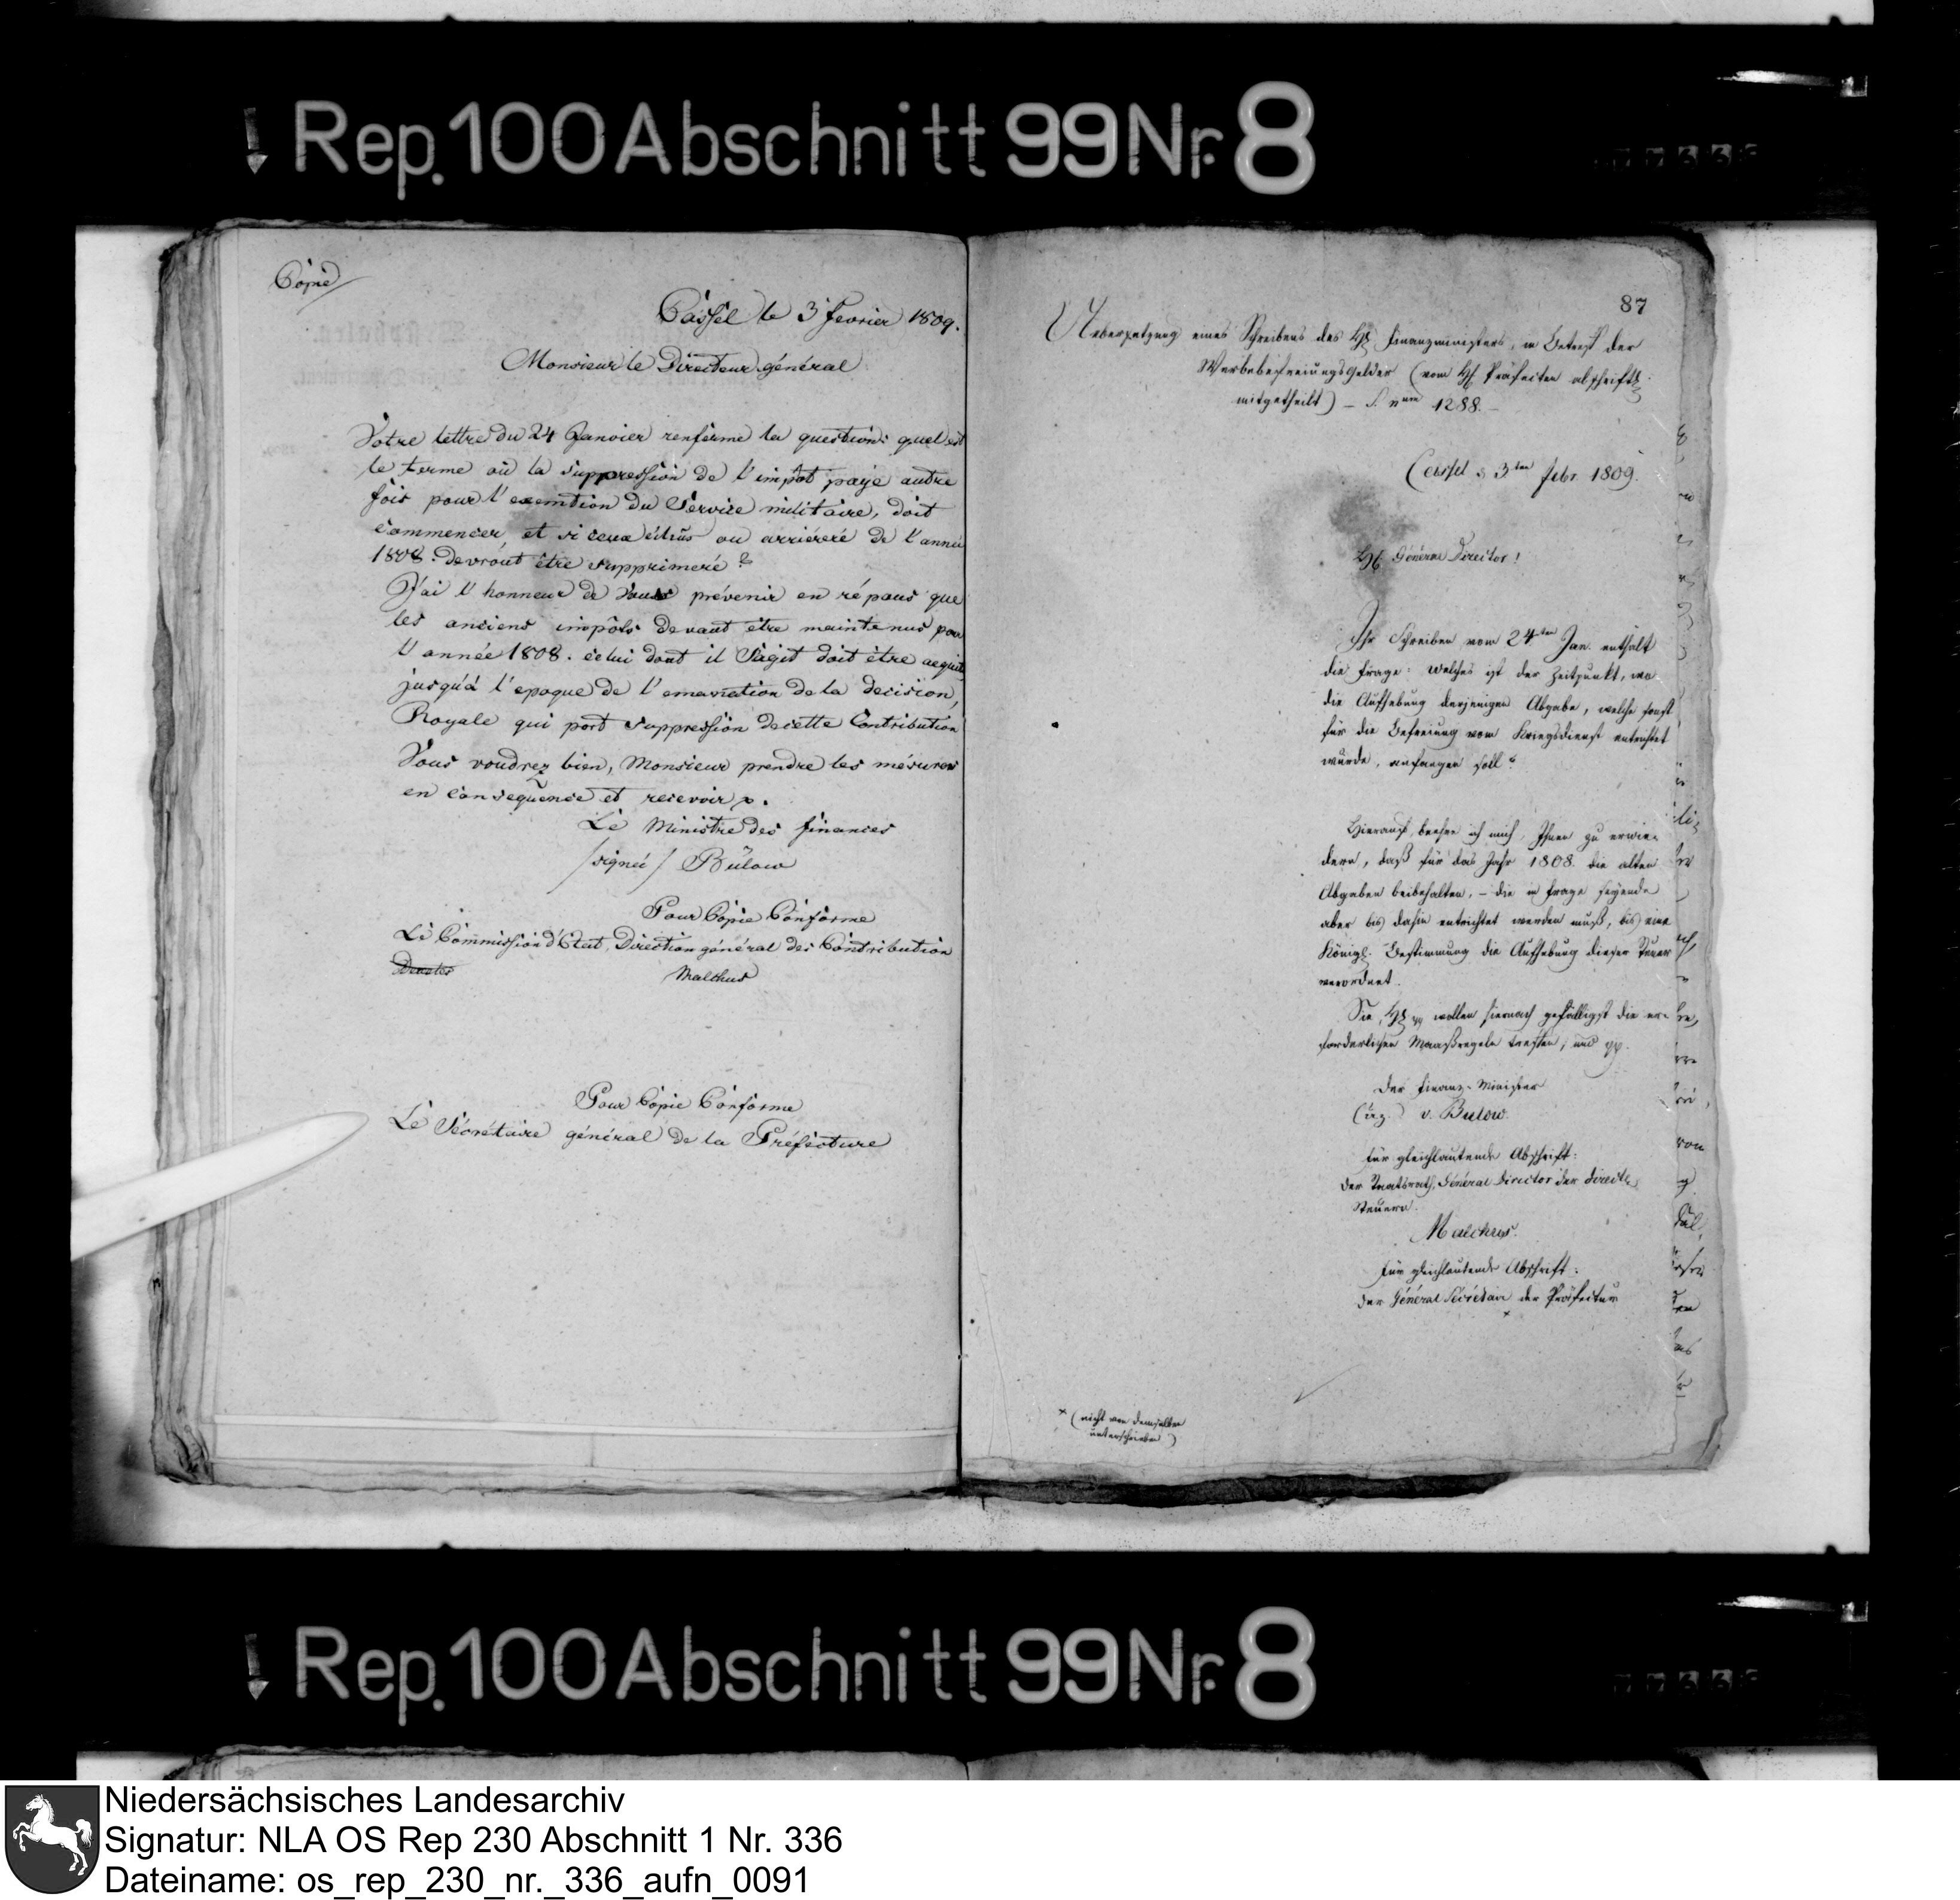 Rep. 100 Abschnitt 99 Nr. 8
Copie
Cassel le 3 fevrier 1809.
Monsieur le Directeur général
Votre lettre du 24 Janvier renferme la question: quel est
le terme où la suppression de l'impôt payé autre
fois pour l'exemtion du Service militaire, doit
commencer, et si ceux échus ou arriéreré de l'année
1808. devront être supprimeré?
J'ai l'honneur de Vous prévenir en répons que
les anciens impôts devant être maintenus pour
l'année 1808. celui dont il s'agit doit être acquit
jusqu'à l'epoque de l'emanation de la decision
Royale qui port suppression de cette Contribution
Vous voudrez bien, Monsieur prendre les mésures
en consequence et recevoir p.
Le Ministre des finances
/signé/ Bülow
Pour Copie Conforme
Le Commission d'Etat, Direction général des Contribution
Malchus
Pour Copie Conforme
Le Sécretaire général de la Préfecture
87
Uebersetzung eines Schreibens des H. Finanzministers, in Betreff der
Werbebefreiungsgelder (vom H. Präfecten abschriftl.
mitgetheilt) – S. num 1288. –
Cassel d. 3ten Febr. 1809.
H. Général Director!
Ihr Schreiben vom 24ten Jan. enthält
die Frage: welches ist der Zeitpunkt, wo
die Aufhebung derjenigen Abgabe, welche sonst
für die Befreiung vom Kriegsdienst entrichtet
wurde, anfangen soll?
Hierauf beehre ich mich, Ihnen zu erwie-
dern, daß für das Jahr 1808. die alten
Abgaben beibehalten, – die in Frage seyende
aber bis dahin entrichtet werden muß, bis eine
Königl. Bestimmung die Aufhebung dieser Steuer
verordnet.
Sie, H. wollen hiernach gefälligst die er-
forderlichen Maaßregeln treffen, und pp.
Der Finanz-Minister
(gez.) v. Bulow.
für gleichlautende Abschrift:
Der Staatsrath, Général Director der directen
Steuern.
Malchus.
für gleichlautende Abschrift:
Der Général Sécrétair der Präfectur
×
× (nicht von demselben
unterschrieben)
Rep. 100 Abschnitt 99 Nr. 8
Niedersächsisches Landesarchiv
Signatur: NLA OS Rep 230 Abschnitt 1 Nr. 336
Dateiname: os_rep_230_nr._336_aufn_0091